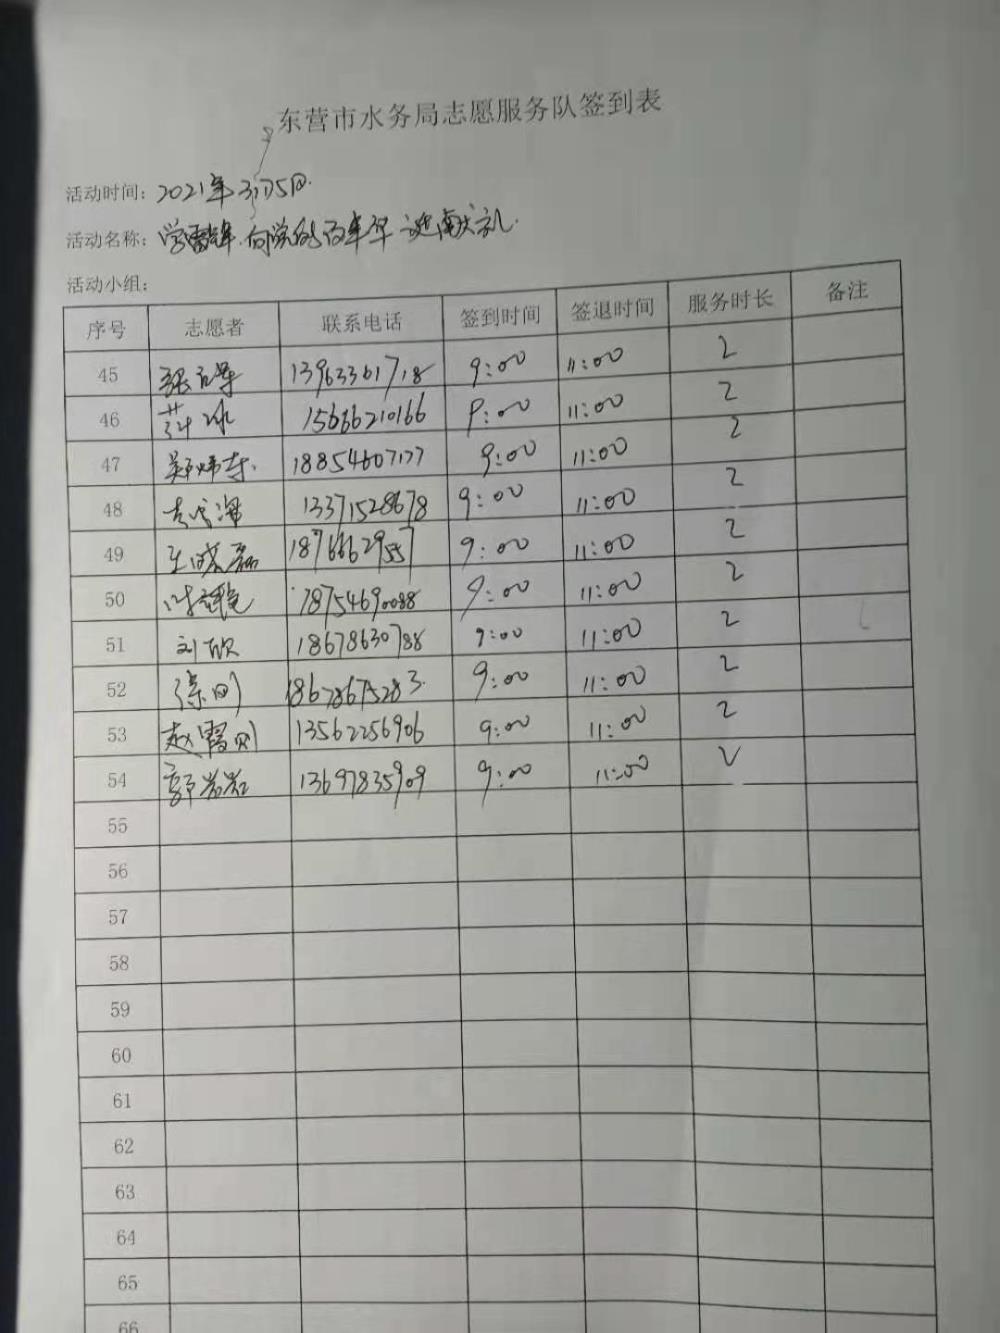 东营市水务局志愿服务队签到表
活动时间: 2021年3月5日.
活动名称: 学雷锋.向党的百年华诞献礼.
活动小组:
序号 志愿者 联系电话 签到时间 签退时间 服务时长 备注
45 13963361718 9:00 11:00 2
46 薛冰 15666210166 9:00 11:00 2
47 18854607177 9:00 11:00 2
48 13371528678 9:00 11:00 2
49 王晓磊 18766629557 9:00 11:00 2
50 18754690088 9:00 11:00 2
51 刘欣 18678630788 9:00 11:00 2
52 徐刚 18678675283 9:00 11:00 2
53 赵雷刚 13562256906 9:00 11:00 2
54 郭岩岩 13697835909 9:00 11:00 2
55
56
57
58
59
60
61
62
63
64
65
66